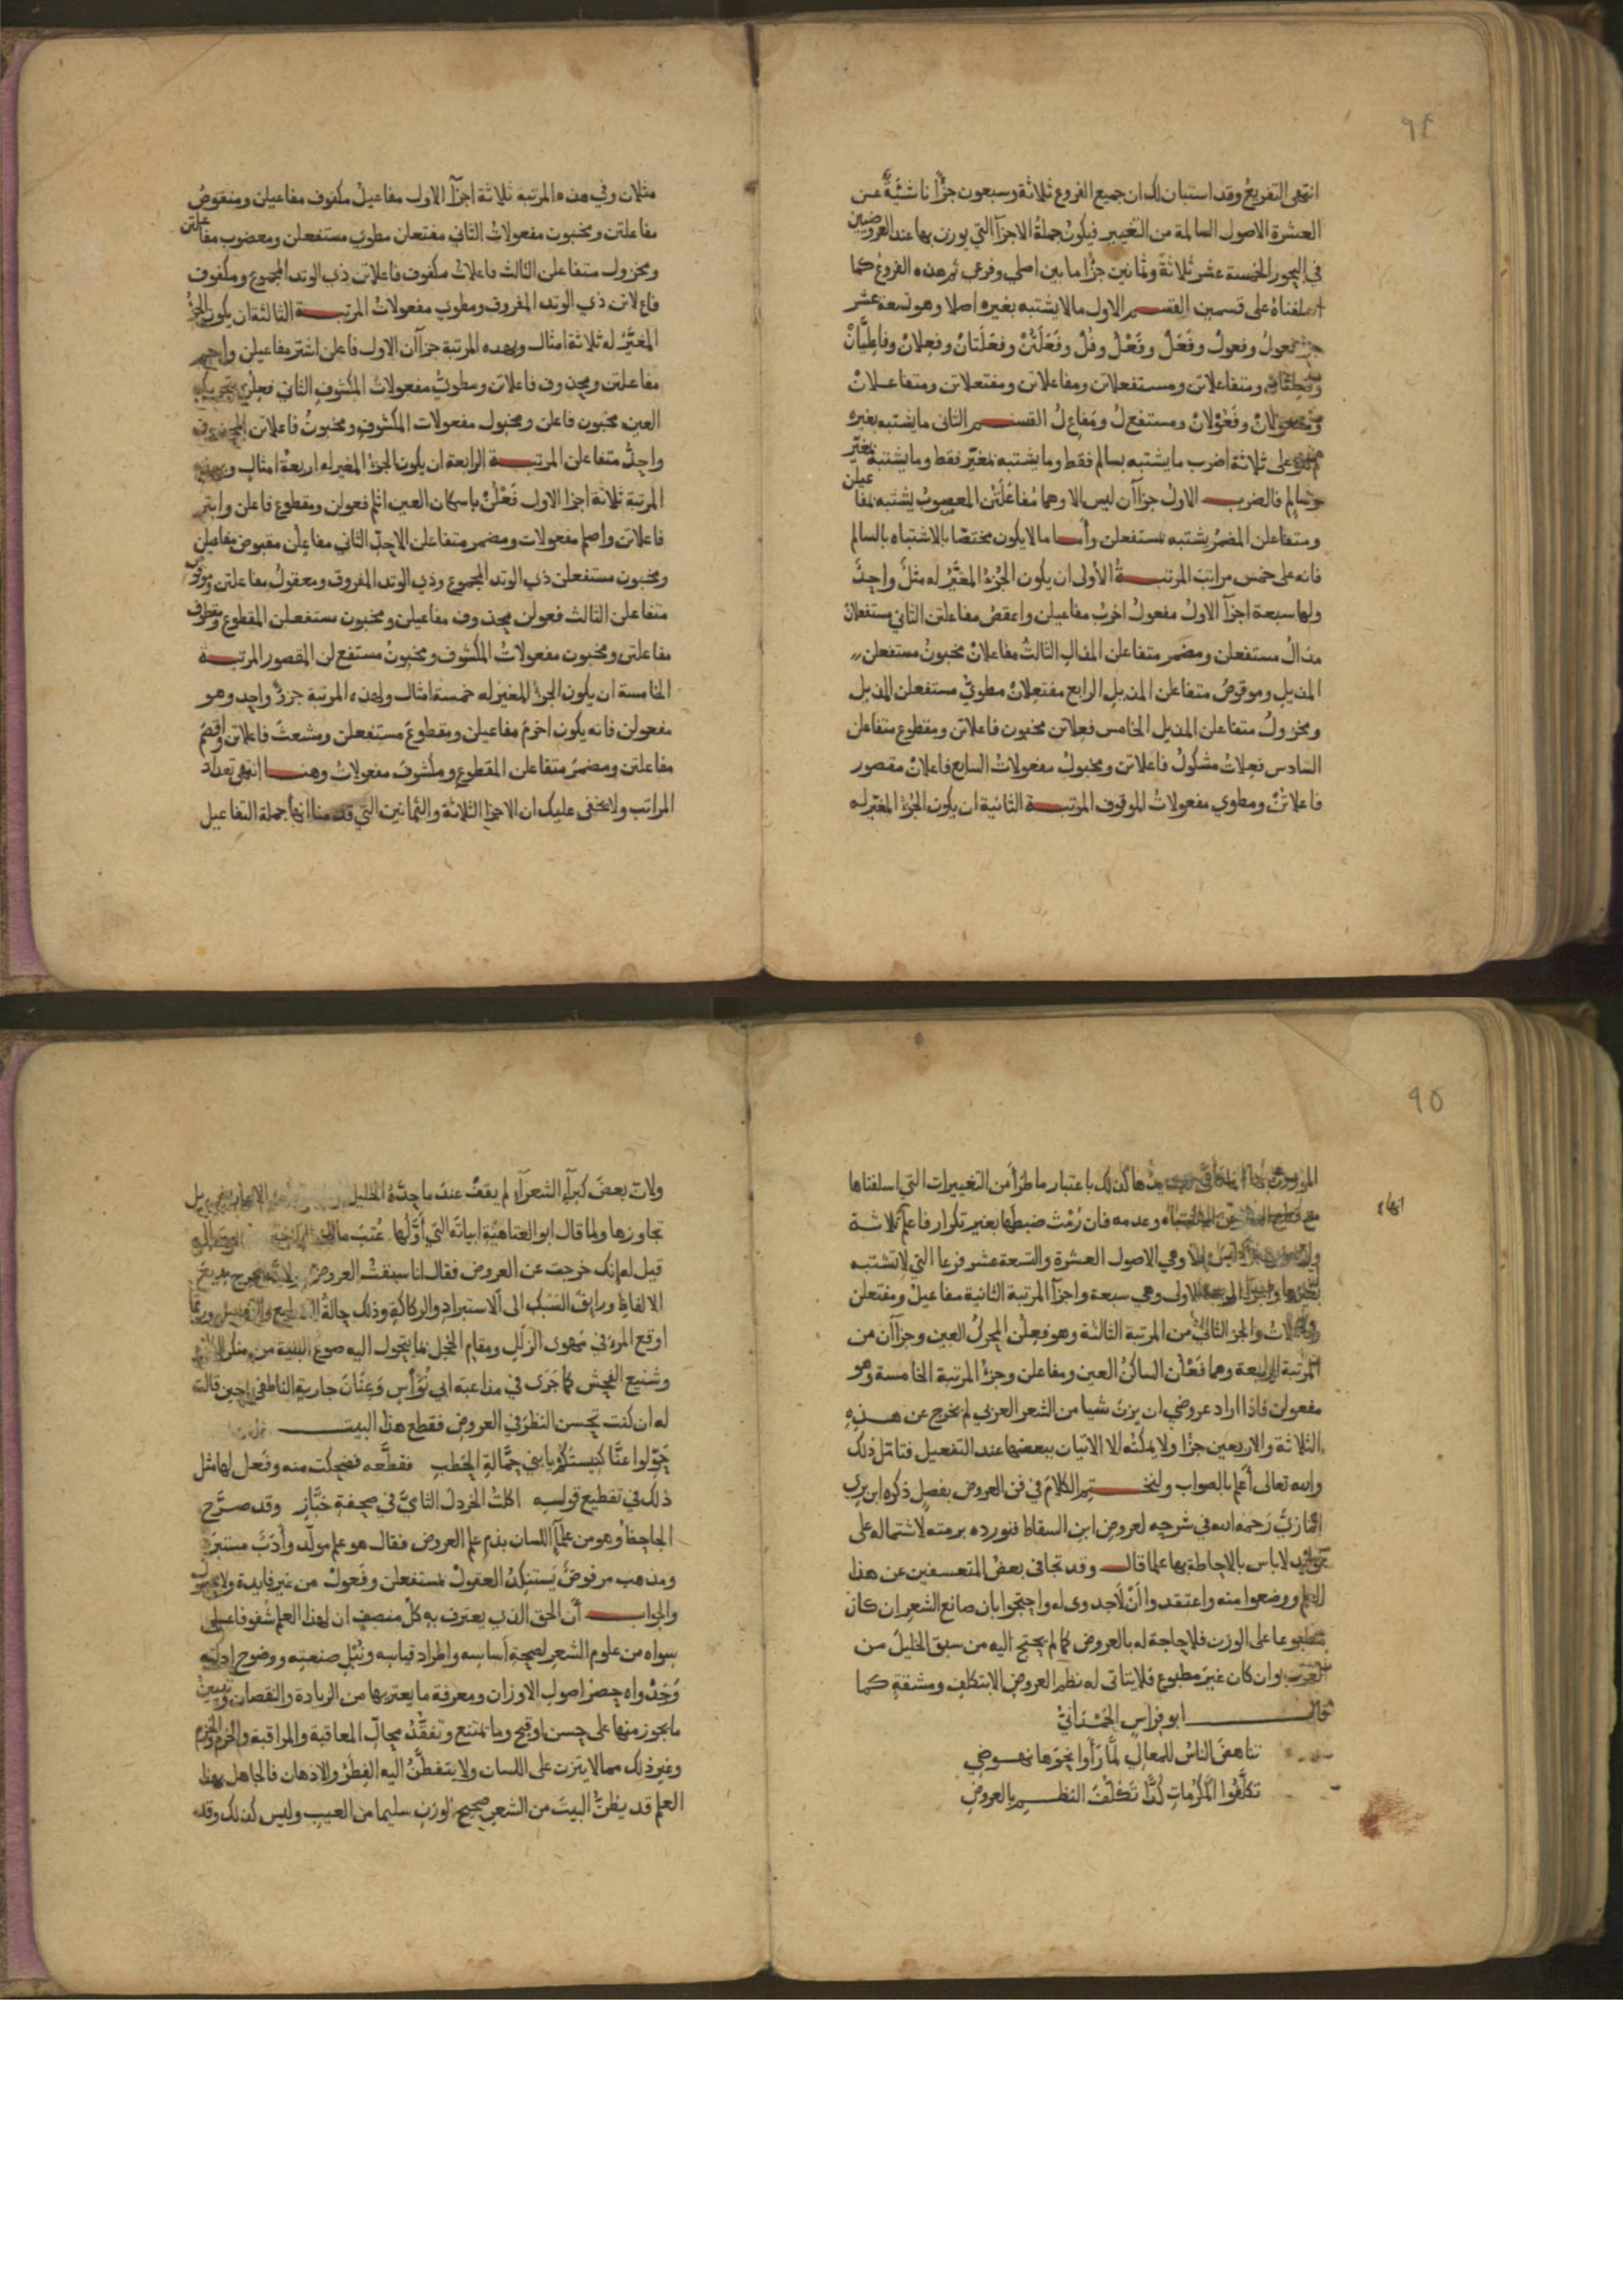 ٩٤
انتهى التفريع وقد استبان لك ان جميع الفروع ثلاثة وسبعون جزأ ناشئة عن
العشرة الاصول السالمة من التغيير فيكون جملة الاجزآ التي يوزن بها عند العروضيين
في البحور الخمسة عشر ثلاثة وثمانين جزأ ما بين اصلي وفرعي ثم هذه الفروع كما
اسلفناه على قسمين القسم الاول ما لا يشتبه بغيره اصلا وهو تسعة عشر
فعول وفعول وفعل وفعل وفل وفعلتن وفعلتان وفعلان وفاعليان
ومتفاعلاتن ومستفعلاتن ومفاعلاتن ومفتعلاتن ومتفاعلان
وفعولان ومستفعل ومفاعل القسم الثاني ما يشتبه بغيره
على ثلاثة اضرب ما يشتبه بسالم فقط وما يشتبه بمغير فقط وما يشتبه بمغير
وسالم فالضرب الاول جزآن ليس الا وهما مفاعلتن المعصوب يشتبه بمفاعيلن
ومتفاعلن المضمر يشتبه بمستفعلن وأما ما لا يكون مختصا بالاشتباه بالسالم
فانه على خمس مراتب المرتبة الأولى ان يكون الجزء المغير له مثل واحد
ولها سبعة اجزآ الاول مفعول اخرب مفاعيلن واعقص مفاعلتن الثاني مستفعلان
مذال مستفعلن ومضمر متفاعلن المذال الثالث مفاعلان مخبون مستفعلن
المذيل وموقوص متفاعلن المذيل الرابع مفتعلان مطوي مستفعلن المذيل
ومخزول متفاعلن المذيل الخامس فعلاتن مخبون فاعلاتن ومقطوع متفاعلن
السادس فعلات مشكول فاعلاتن ومخبول مفعولات السابع فاعلان مقصور
فاعلاتن ومطوي مفعولات الموقوف المرتبة الثانية ان يكون الجزء المغير له
مثلان وفي هذه المرتبة ثلاثة اجزآ الاول مفاعيل مكفوف مفاعيلن ومنقوص
مفاعلتن ومخبون مفعولات الثاني مفتعلن مطوي مستفعلن ومعضوب مفاعلتن
ومخزول متفاعلن الثالث فاعلات مكفوف فاعلاتن ذي الوتد المجموع ومكفوف
فاع لاتن ذي الوتد المفروق ومطوي مفعولات المرتبة الثالثة ان يكون الجزء
المغير له ثلاثة امثال وبهذه المرتبة جزآن الاول فاعلن اشتر مفاعيلن واجم
مفاعلتن ومحذوف فاعلاتن ومطوي مفعولات المكشوف الثاني فعلن بتحريك
العين مخبون فاعلن ومخبول مفعولات المكشوف ومخبون فاعلاتن المحذوف
واحذ متفاعلن المرتبة الرابعة ان يكون الجزء المغير له اربعة امثال وبهذه
المرتبة ثلاثة اجزا الاول فعلن باسكان العين اثلم فعولن ومقطوع فاعلن وابتر
فاعلاتن واصلم مفعولات ومضمر متفاعلن الاحذ الثاني مفاعلن مقبوض مفاعيلن
ومخبون مستفعلن ذي الوتد المجموع وذي الوتد المفروق ومعقول مفاعلتن وموقوص
متفاعلن الثالث فعولن محذوف مفاعيلن ومخبون مستفعلن المقطوع ومقطوف
مفاعلتن ومخبون مفعولات المكشوف ومخبون مستفع لن المقصور المرتبة
الخامسة ان يكون الجزء المغير له خمسة امثال ولهذه المرتبة جزؤ واحد وهو
مفعولن فانه يكون اخرم مفاعيلن ومقطوع مستفعلن ومشعث فاعلاتن واقصم
مفاعلتن ومضمر متفاعلن المقطوع ومكشوف مفعولات وهنا انتهى تعداد
المراتب ولا يخفى عليك ان الاجزا الثلاثة والثمانين التي قدمنا انها جملة التفاعيل
٩٥
الموزون بها كذلك باعتبار ما طرأ من التغييرات التي اسلفناها
انها
مع قطع النظر عن الاشتباه وعدمه فان رمت ضبطها بغير تكرار فاعلم ثلاثة
واربعون ليس الا وهي الاصول العشرة والتسعة عشر فرعا التي لا تشتبه
بغيرها واجزا المرتبة الاولى وهي سبعة واجزآ المرتبة الثانية مفاعيل ومفتعلن
وفاعلات والجز الثاني من المرتبة الثالثة وهو فعلن المحرك العين وجزآن من
المرتبة الرابعة وهما فعلن الساكن العين ومفاعلن وجزء المرتبة الخامسة وهو
مفعولن فاذا اراد عروضي ان يزن شيا من الشعر العربي لم يخرج عن هذه
الثلاثة والاربعين جزأ ولا يمكنه الا الاتيان ببعضها عند التفعيل فتامل ذلك
والله تعالى أعلم بالصواب ولنختم الكلام في فن العروض بفصل ذكره ابن بري
المازني رحمه الله في شرحه لعروض ابن السقاط فنورده برمته لاشتماله على
فوايد لا باس بالاحاطة بها علما قال وقد تجافى بعض المتعسفين عن هذا
العلم ووضعوا منه واعتقدوا أن لا جدوى له واحتجوا بان صانع الشعر ان كان
مطبوعا على الوزن فلا حاجة له بالعروض كما لم يحتج اليه من سبق الخليل من
العرب وان كان غير مطبوع فلا يتاتى له نظم العروض الا بتكلف ومشقة كما
قال ابو فراس الحمداني
تناهض الناس للمعالي لما رأوا نحوها نهوضي
تكلفوا المكرمات كدا تكلف النظم بالعروض
ولان بعض كبرآء الشعرآء لم يقف عند ما حده الخليل بل
تجاوزها ولما قال ابو العتاهية ابياته التي اولها عتب ما للخيال
قيل له انك خرجت عن العروض فقال انا سبقت العروض ولانه يخرج بديع
الالفاظ ورايق السبك الى الاستبراد والركاكة وذلك حالة
اوقع المرء في مهوى الزلل ومقام الخجل بما يتحول اليه صوغ البنية من منكر
وشنيع الفحش كما جرى في مداعبة ابي نواس وعنان جارية الناطفي حين قالت
له ان كنت تحسن النظر في العروض فقطع هذا البيت
حولوا عنا كنيستكم يا بني حمالة الحطب فقطعه فضحكت منه وفعل لها مثل
ذلك في تقطيع قوله اكلت الخردل الشامي في صحفة خباز وقد صرح
الجاحظ وهو من علمآ اللسان بذم علم العروض فقال هو علم مولد وأدب مستبرد
ومذهب مرفوض يستنكد العقول بمستفعلن وفعول من غير فايدة ولا محصول
والجواب أن الحق الذي يعترف به كل منصف ان لهذا العلم شفوفا على
سواه من علوم الشعر لصحة أساسه واطراد قياسه ونبل صنعته ووضوح ادلته
وجدواه حصر اصول الاوزان ومعرفة ما يعتريها من الزيادة والنقصان وتبيين
ما يجوز منها على حسن او قبح وما يمتنع وتفقد محال المعاقبة والمراقبة والخرم والخزم
وغير ذلك مما لا يتزن على اللسان ولا يتفطن اليه الفطر والاذهان فالجاهل بهذا
العلم قد يظن البيت من الشعر صحيح الوزن سليما من العيب وليس كذلك وقد